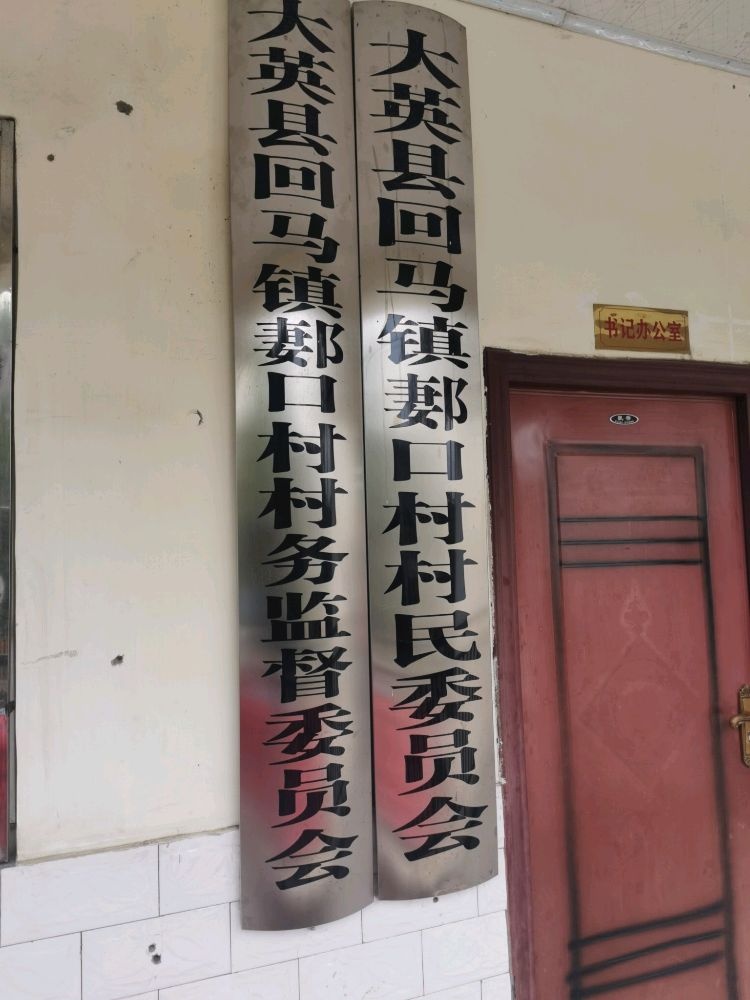 大英县回马镇郪口村村务监督委员会
大英县回马镇郪口村村民委员会
书记办公室